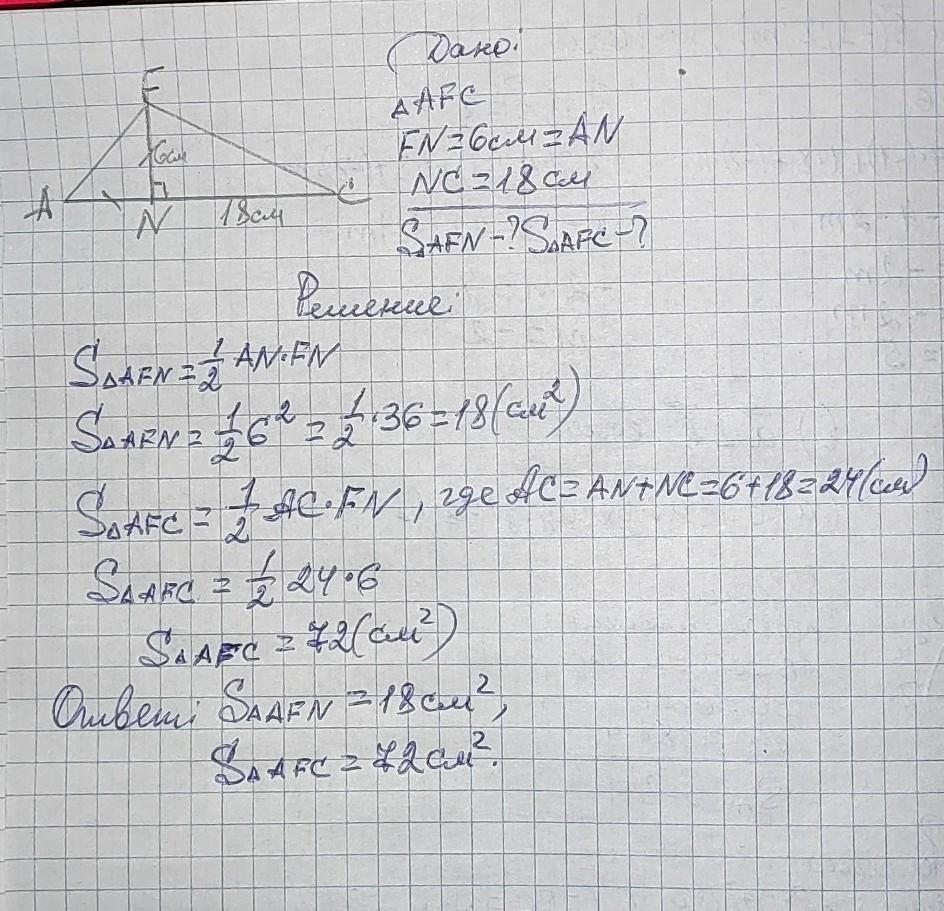 F
6см
A
N
18см
C
Дано:
△AFC
FN=6см=AN
NC=18см
S△AFN-? S△AFC-?
Решение:
S△AFN = 1/2 AN·FN
S△AFN = 1/2 6² = 1/2·36=18(см²)
S△AFC = 1/2 AC·FN, где AC=AN+NC=6+18=24(см)
S△AFC = 1/2 24·6
S△AFC = 72(см²)
Ответ: S△AFN =18см²,
S△AFC = 72см².